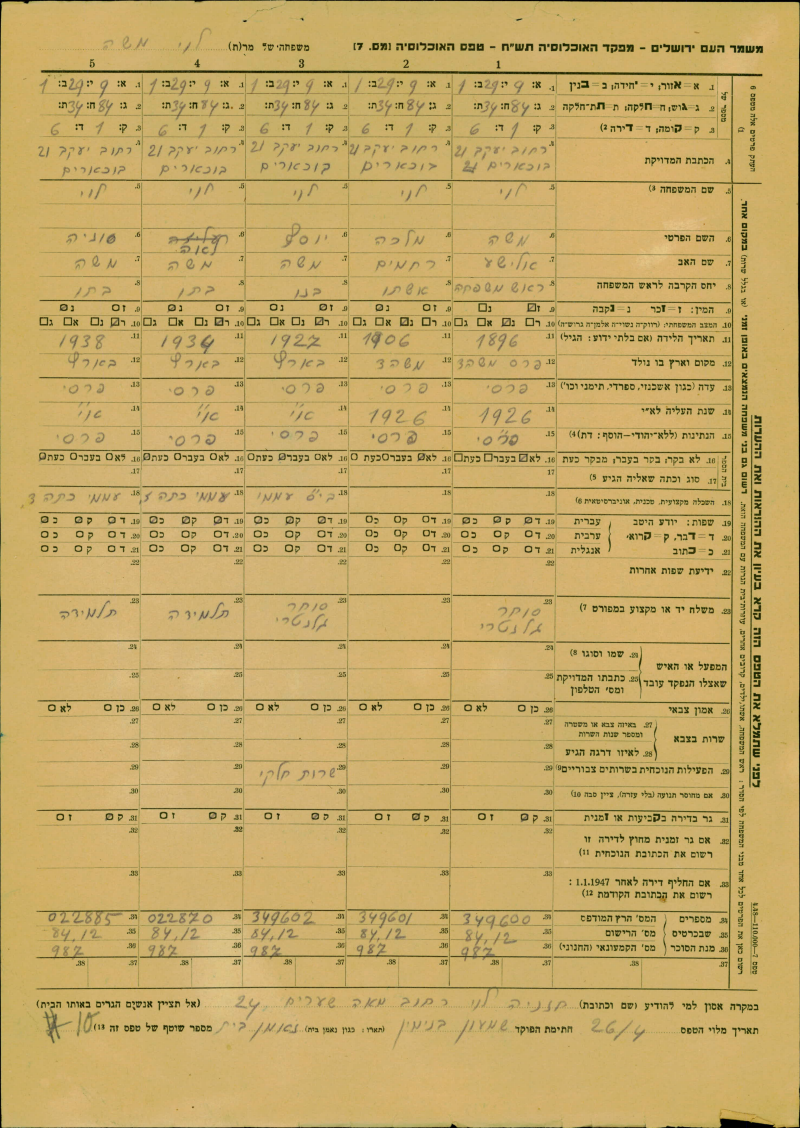 משמר העם ירושלים – מפקד האוכלוסיה תש״ח – טפס האוכלוסיה [מס. 7] משפחה של מר(ת) לוי משה
1 2 3 4 5
1. א=אזור; י=יחידה; ב=בנין א: 9 י: 29 ב: 1 א: 9 י: 29 ב: 1 א: 9 י: 29 ב: 1 א: 9 י: 29 ב: 1 א: 9 י: 29 ב: 1
2. ג=גוש; ח=חלקה; ת=תת-חלקה ג: 84 ח: 34 ת: ג: 84 ח: 34 ת: ג: 84 ח: 34 ת: ג: 84 ח: 34 ת: ג: 84 ח: 34 ת:
3. ק=קומה; ד=דירה (2 ק: 1 ד: 6 ק: 1 ד: 6 ק: 1 ד: 6 ק: 1 ד: 6 ק: 1 ד: 6
4. הכתבת המדויקת רחוב יעקב 21 בוכארים רחוב יעקב 21 בוכארים רחוב יעקב 21 בוכארים רחוב יעקב 21 בוכארים רחוב יעקב 21 בוכארים
5. שם המשפחה (3 לוי לוי לוי לוי לוי
6. השם הפרטי משה מלכה יוסף לאה סוניה
7. שם האב אלישע רחמים משה משה משה
8. יחס הקרבה לראש המשפחה ראש משפחה אשתו בנו בתו בתו
9. המין: ז=זכר נ=נקבה
10. המצב המשפחתי: (רווק/ה נשוי/ה אלמן/ה גרוש/ה)
11. תאריך הלידה (אם בלתי ידוע: הגיל) 1896 1906 1927 1934 1938
12. מקום וארץ בו נולד פרס משהד משהד בארץ בארץ בארץ
13. עדה (כגון אשכנזי, ספרדי, תימני וכו') פרסי פרסי פרסי פרסי פרסי
14. שנת העליה לא״י 1926 1926 א״י א״י א״י
15. הנתינות (ללא־יהודי–הוסף: דת) (4 פרסי פרסי פרסי פרסי פרסי
16. לא בקר; בקר בעבר; מבקר כעת לא בעבר כעת לא בעבר כעת לא בעבר כעת לא בעבר כעת לא בעבר כעת
17. סוג וכתה שאליה הגיע (5
18. השכלה מקצועית, טכנית, אוניברסיטאית (6 בי״ס עממי עממי כתה עממי כתה 3
19. שפות: יודע היטב עברית ד ק כ ד ק כ ד ק כ ד ק כ ד ק כ
20. ד=דבר, ק=קרוא, ערבית ד ק כ ד ק כ ד ק כ ד ק כ ד ק כ
21. כ=כתוב אנגלית ד ק כ ד ק כ ד ק כ ד ק כ ד ק כ
22. ידיעת שפות אחרות
23. משלח יד או מקצוע במפורט (7 סוחר גלנטרי סוחר גלנטרי תלמידה תלמידה
24. שמו וסוגו (8
המפעל או האיש שאצלו הנפקד עובד
25. כתבתו המדויקת ומס' הטלפון
26. אמון צבאי כן לא כן לא כן לא כן לא כן לא
27. באיזה צבא או משטרה ומספר שנות השרות
שרות בצבא
28. לאיזו דרגה הגיע
29. הפעילות הנוכחית בשרותים צבוריים (9 שרות חלקי
30. אם מחוסר תנועה (בלי עזרה), ציין סבה (10
31. גר בדירה בקביעות או זמנית ק ז ק ז ק ז ק ז ק ז
32. אם גר זמנית מחוץ לדירה זו
רשום את הכתובת הנוכחית (11
33. אם החליף דירה לאחר 1.1.1947:
רשום את הכתובת הקודמת (12
34. מספרים המס' הרץ המודפס 349600 349601 349602 022870 022885
35. שבכרטיס מס' הרישום 84,12 84,12 84,12 84,12 84,12
36. מנת הסוכר מס' הקמעונאי (החנוני) 987 987 987 987 987
37. 38. 37. 38. 37. 38. 37. 38. 37. 38.
במקרה אסון למי להודיע (שם וכתובת) לוי רחוב מאה שערים 24 (אל תציין אנשים הגרים באותו הבית)
תאריך מלוי הטפס 26/4 חתימת הפוקד שמעון בנימין (תארו: כגון נאמן בית) נאמן בית מספר שוטף של טפס זה (13 10
לפני שתמלא את הטפס הזה קרא בעיון את ההוראות ואת הערות